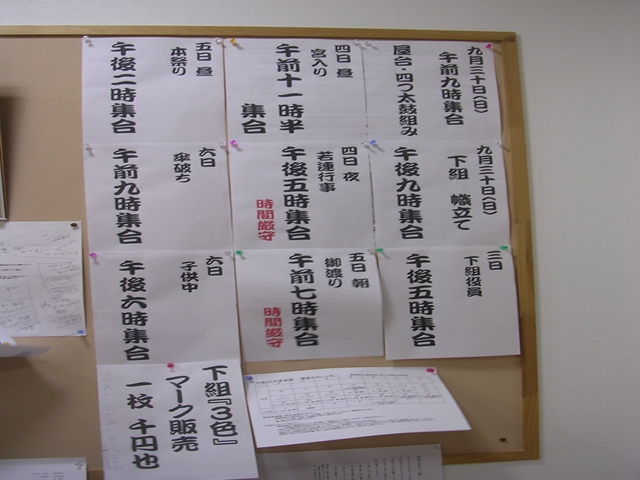 九月三十日(日)
午前九時集合
屋台・四つ太鼓組み
四日 昼
宮入り
午前十一時半
集合
五日 昼
本祭り
午後二時集合
九月三十日(日)
下組 幟立て
午後九時集合
四日 夜
若連行事
午後五時集合
時間厳守
六日
傘破ち
午前九時集合
三日
下組役員
午後五時集合
五日 朝
御渡り
午前七時集合
時間厳守
六日
子供中
午後六時集合
下組『3色』
マーク販売
一枚 千円也